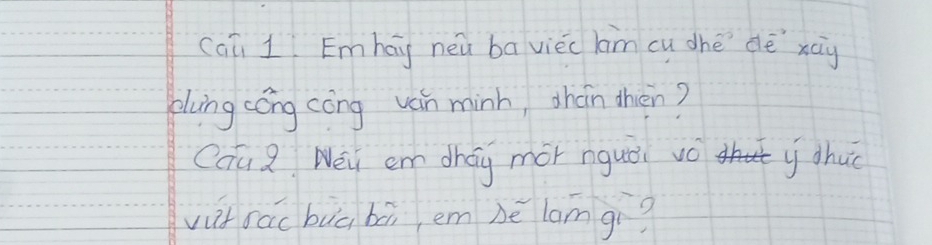 Câu 1: Em hãy nêu ba việc làm cụ thể để xây
dựng cộng cộng văn minh, thân thiện?
Câu 2. Nếu em thấy một người vô thứt ý thức
vứt rác bừa bãi, em sẽ làm gì?